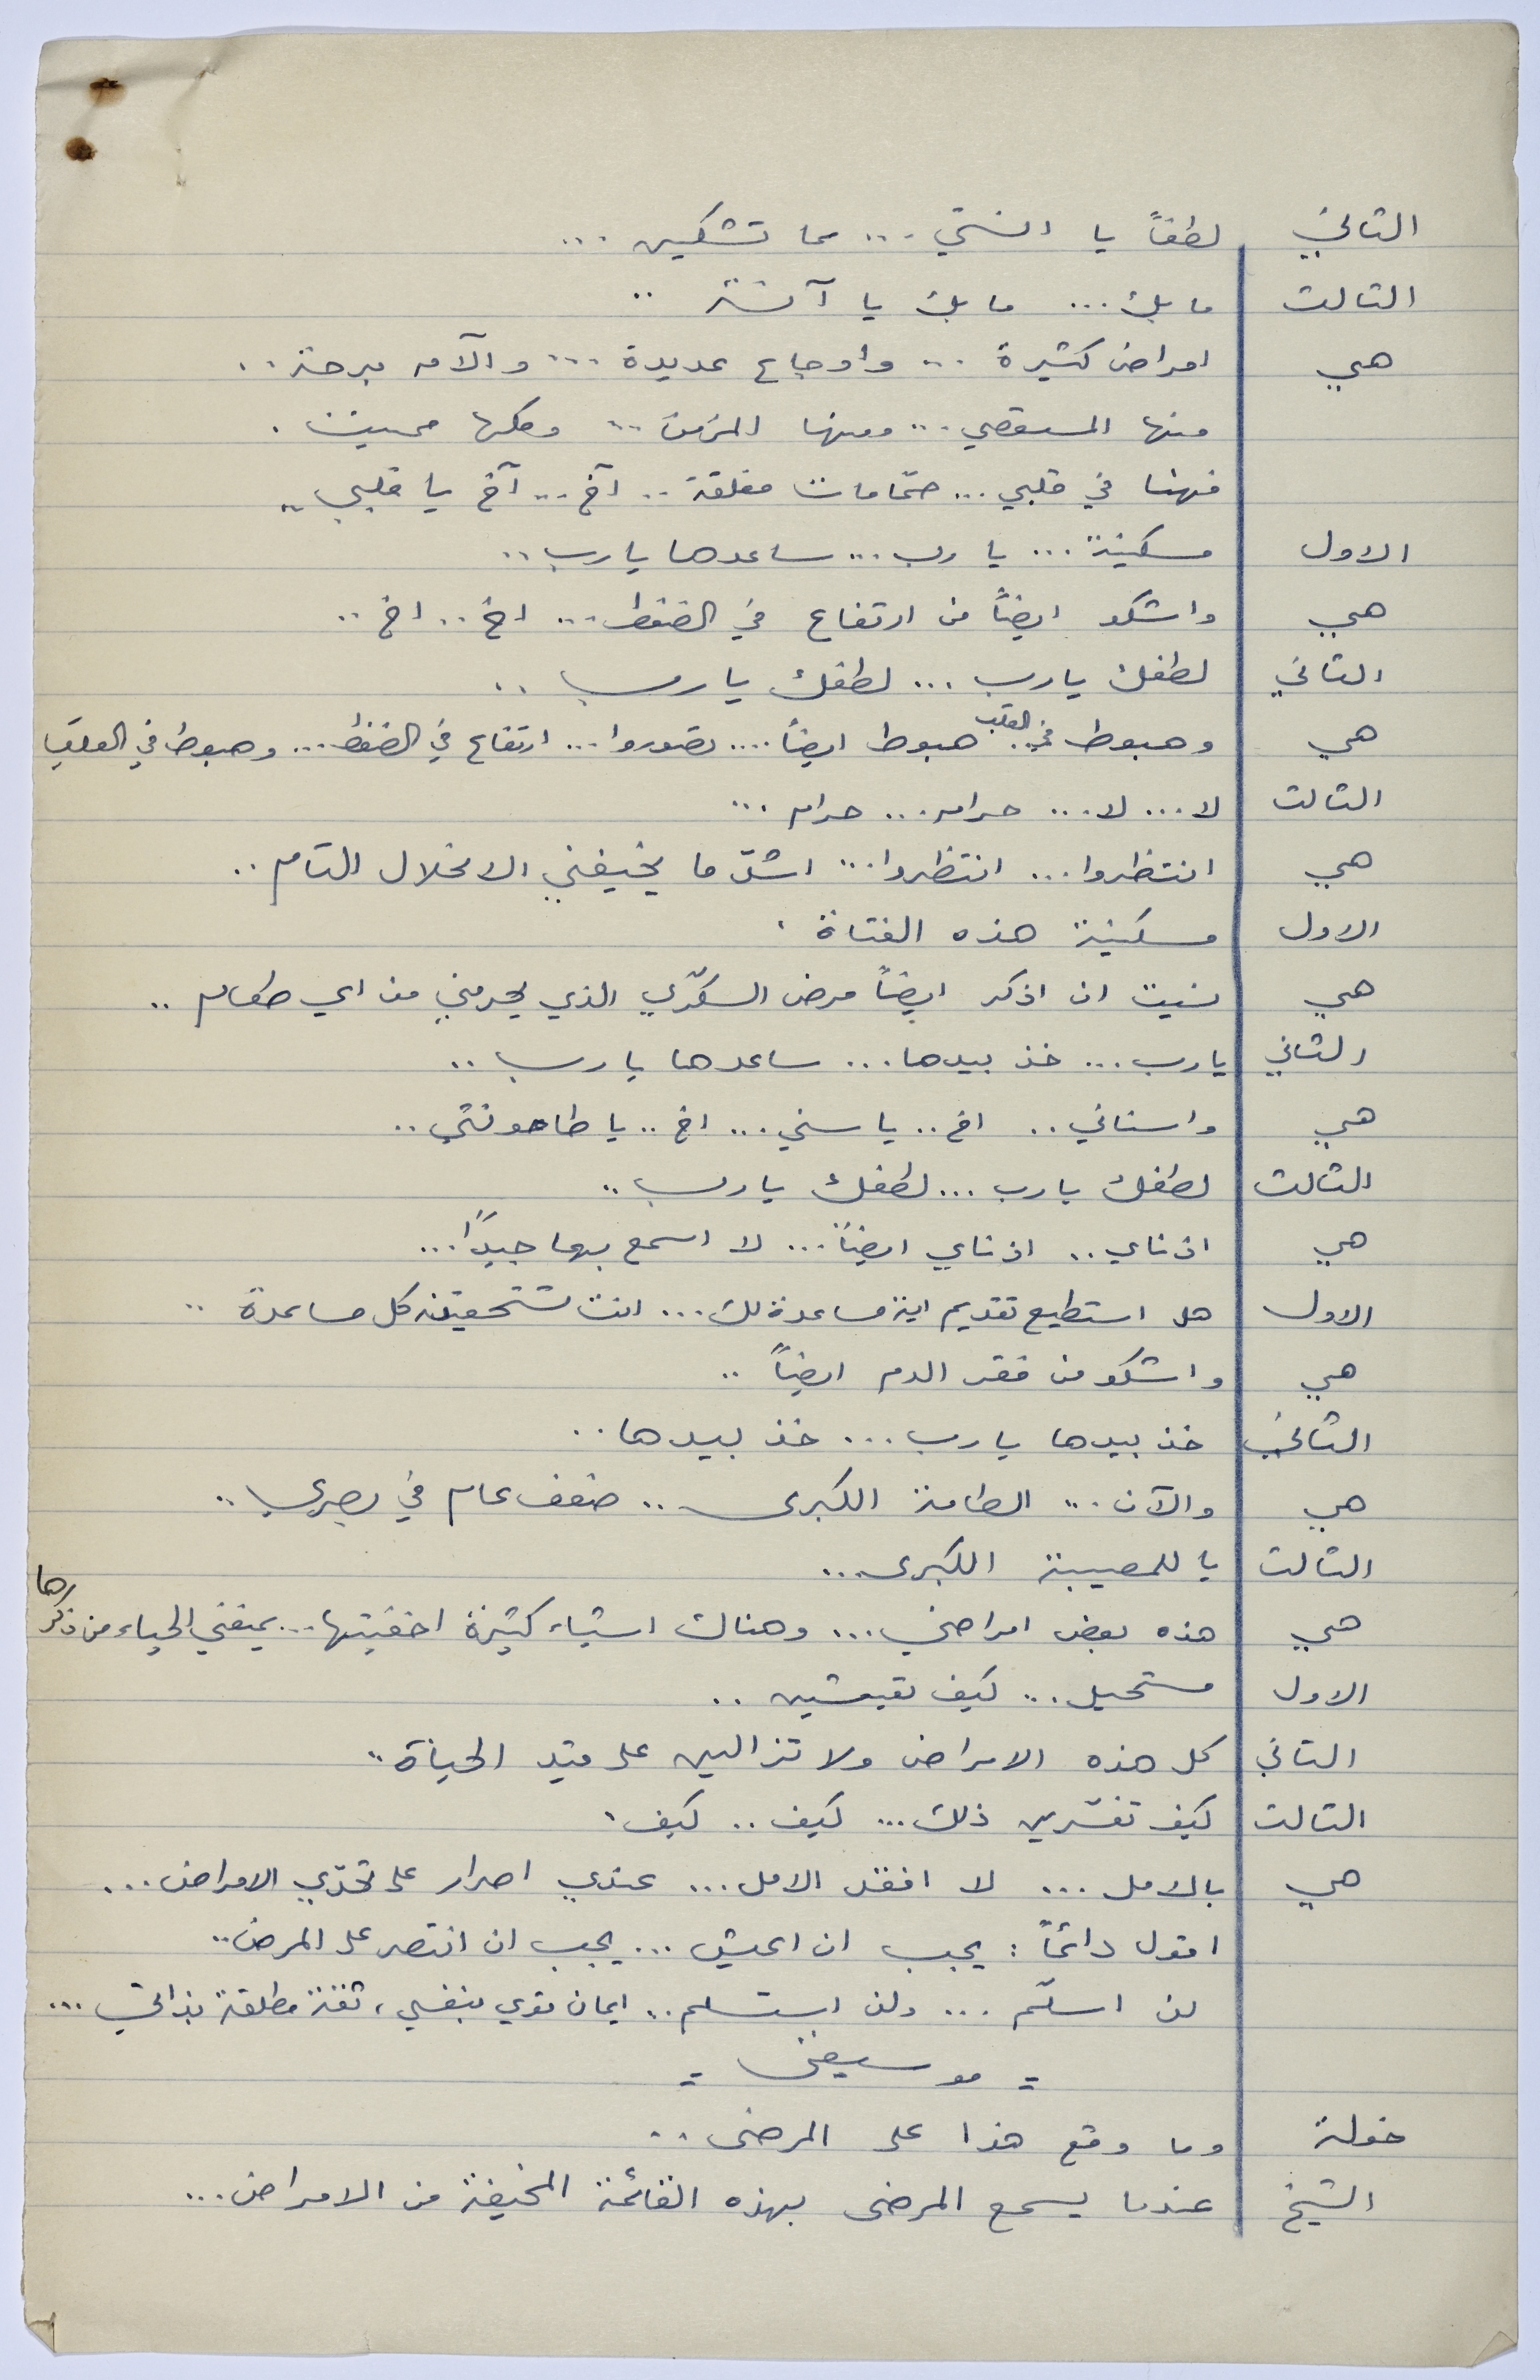 الثاني لطفاً يا انستي ... مما تشكين ...
الثالث مابك ... مابك يا آنسة ..
هي امراض كثيرة ... واوجاع عديدة ... وآلام مبرحة ..
منها المستعصي ... ومنها المزمن ... وكلها مميت .
فهنا في قلبي ... صمّامات مغلقة .. آخ ... آخ يا قلبي ..
الاول مسكينة ... يا رب ... ساعدها يا رب ..
هي واشكو ايضاً من ارتفاع في الضغط ... اخ .. اخ ..
الثاني لطفك يا رب ... لطفك يا رب ..
هي وهبوط في القلب .. هبوط ايضاً .... تصوروا ... ارتفاع في الضغط ... وهبوط في القلب
الثالث لا ... لا ... حرام ... حرام ...
هي انتظروا ... انتظروا ... اشدّ ما يخيفني الانحلال التام ..
الاول مسكينة هذه الفتاة .
هي نسيت ان اذكر ايضاً مرض السكّري الذي يحرمني من اي طعام ..
الثاني يا رب ... خذ بيدها ... ساعدها يا رب ..
هي واسناني .. اخ .. يا سني ... اخ .. يا طاحونتي ..
الثالث لطفك يا رب ... لطفك يا رب ..
هي اذناي .. اذناي ايضاً ... لا اسمع بهما جيداً ...
الاول هل استطيع تقديم اية مساعدة لك ... انت تستحقين كل مساعدة ..
هي واشكو من فقر الدم ايضاً ..
الثاني خذ بيدها يا رب ... خذ بيدها ..
هي والآن ... الطامة الكبرى .. ضعف عام في بصري ..
الثالث يا للمصيبة الكبرى ...
هي هذه بعض امراضي ... وهناك اشياء كثيرة اخفيتها ... يمنعني الحياء من ذكرها
الاول مستحيل ... كيف تعيشين ..
الثاني كل هذه الامراض ولا تزالين على قيد الحياة ..
الثالث كيف تفسّرين ذلك ... كيف .. كيف .
هي بالامل ... لا افقد الامل ... عندي اصرار على تحدّي الامراض ...
اقول دائماً : يجب ان اعيش ... يجب ان انتصر على المرض ..
لن اسلّم ... ولن استسلم .. ايمان قوي بنفسي ، ثقة مطلقة بذاتي ...
= موسيقى =
خولة وما وقع هذا على المرضى ..
الشيخ عندما يسمع المرضى بهذه القائمة المخيفة من الامراض ...